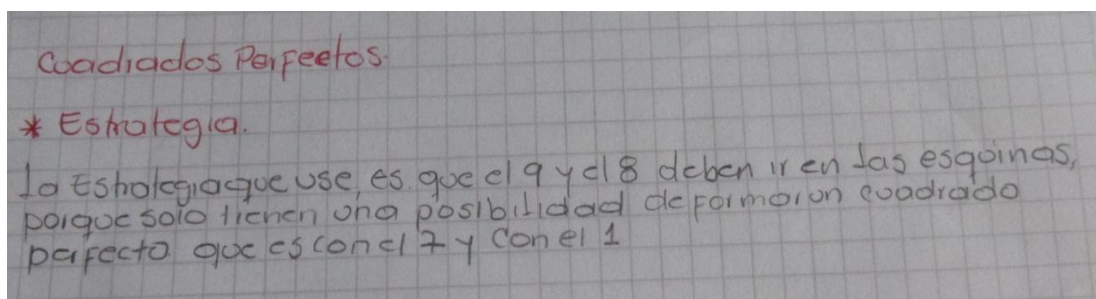 Cuadrados Perfectos.
* Estrategia.
la Estrategia que use, es que el 9 y el 8 deben ir en las esquinas,
porque solo tienen una posibilidad de formar un cuadrado
perfecto que es con el 7 y con el 1